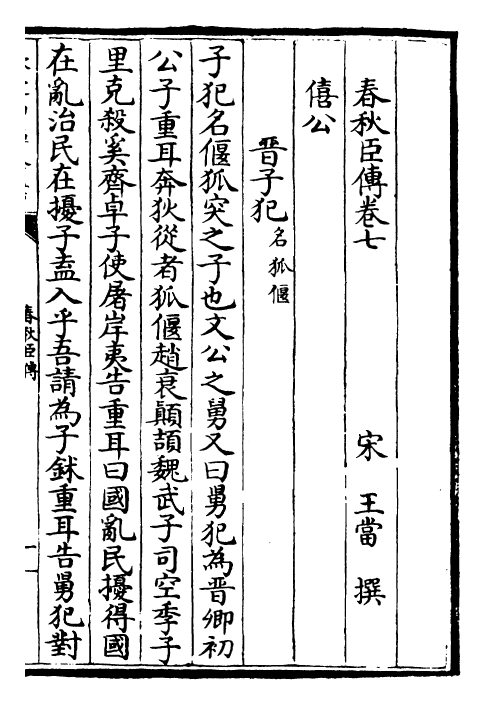 春秋臣傳卷七
宋 王當 撰
僖公
晉子犯名狐偃
子犯名偃狐突之子也文公之舅又曰舅犯為晉卿初
公子重耳奔狄從者狐偃趙衰顚頡魏武子司空季子
里克殺奚齊卓子使屠岸夷告重耳曰國亂民擾得國
在亂治民在擾子盍入乎吾請為子鉥重耳告舅犯對
春秋臣傳
一